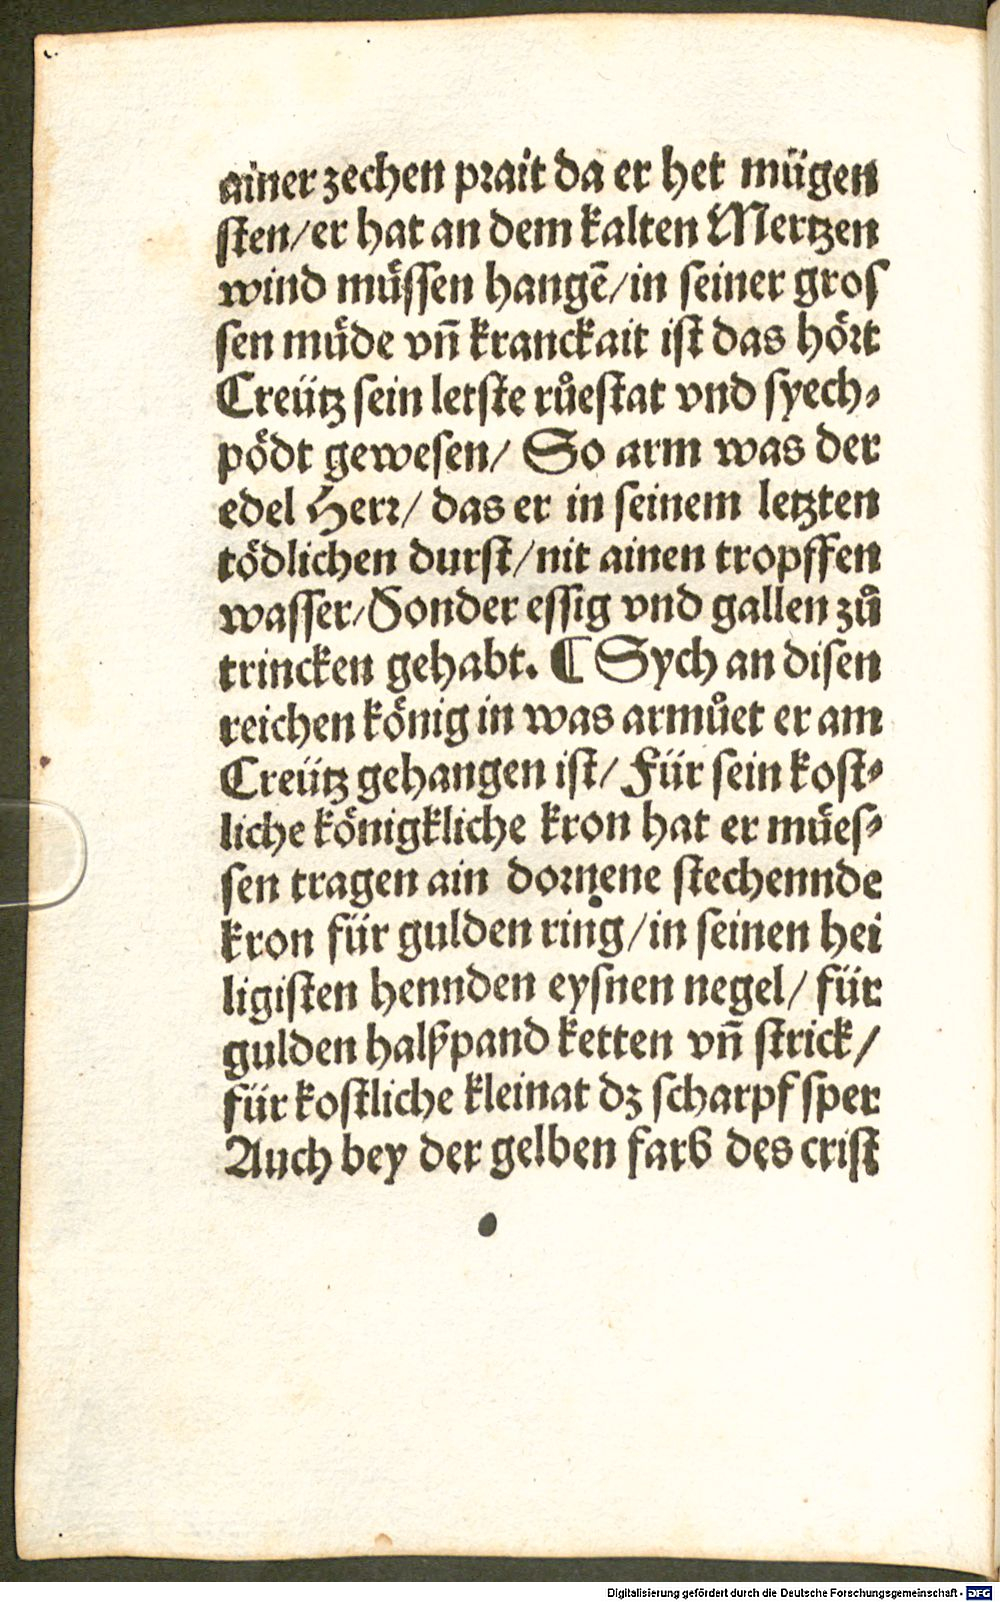 ainer zechen prait da er het mügen
sten/er hat an dem kalten Mertzen
wind muͤssen hangē/in seiner gros
sen muͤde vñ kranckait ist das hoͤrt
Creütz sein letste ruͦestat vnd syech⸗
poͤdt gewesen/ So arm was der
edel Herr/ das er in seinem letzten
toͤdlichen durst/nit ainen tropffen
wasser/Sonder essig vnd gallen zuͦ
trincken gehabt. ¶ Sych an disen
reichen koͤnig in was armuͦet er am
Creütz gehangen ist/ Für sein kost⸗
liche koͤnigkliche kron hat er muͤes⸗
sen tragen ain dornene stechennde
kron für gulden ring/in seinen hei
ligisten hennden eysnen negel/ für
gulden halßpand ketten vñ strick/
für kostliche kleinat dz scharpf sper
Auch bey der gelben farb des crist
Digitalisierung gefördert durch die Deutsche Forschungsgemeinschaft - DFG